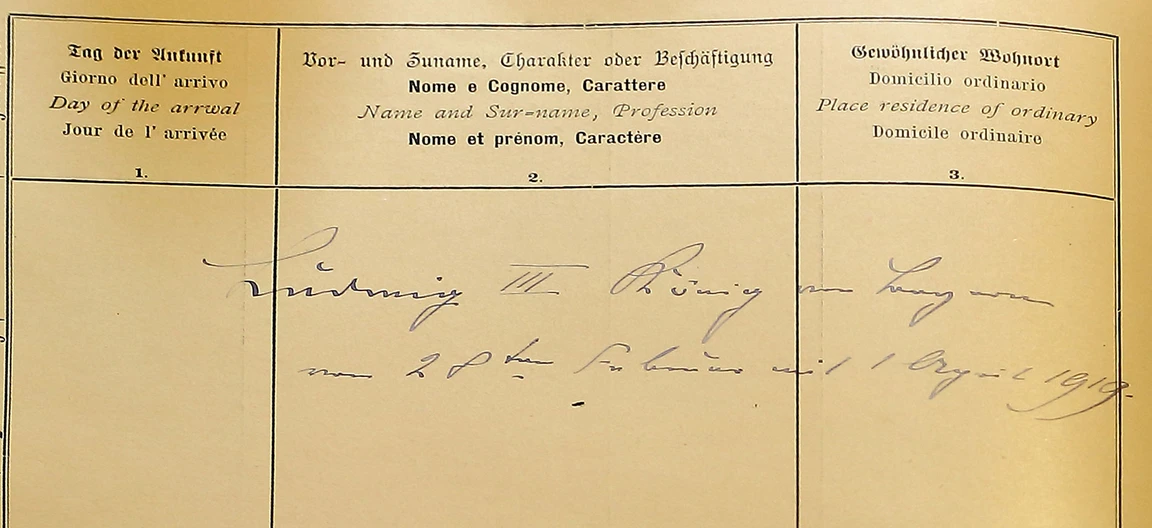 Tag der Ankunft
Giorno dell' arrivo
Day of the arrwal
Jour de l' arrivée
1.
Vor- und Zuname, Charakter oder Beschäftigung
Nome e Cognome, Carattere
Name and Sur=name, Profession
Nome et prénom, Caractère
2.
Gewöhnlicher Wohnort
Domicilio ordinario
Place residence of ordinary
Domicile ordinaire
3.
Ludwig III König von Bayern
vom 28ten Februar mit 1 April 1919.